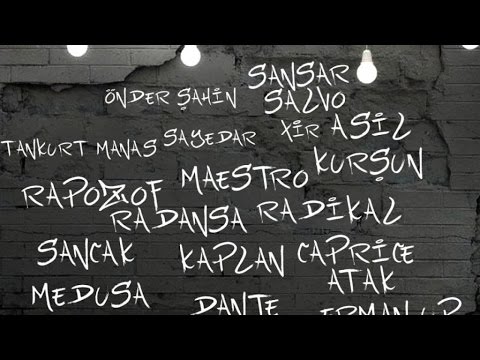 SANSAR
ÖNDER ŞAHİN SALVO
TANKURT MANAS SAYEDAR XİR ASİL
RAPOZOF MAESTRO KURŞUN
RADANSA RADİKAL
SANCAK KAPLAN CAPRICE
ATAK
MEDUSA DANTE